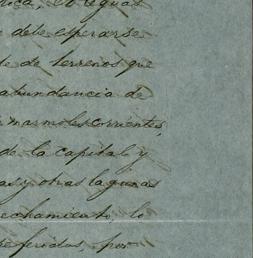 es regular
debe esperarse
de de terrenos que
abundancia de
marmoles corrientes,
de la capital y
as y otras lagunas
echamiento, lo
referidas, por